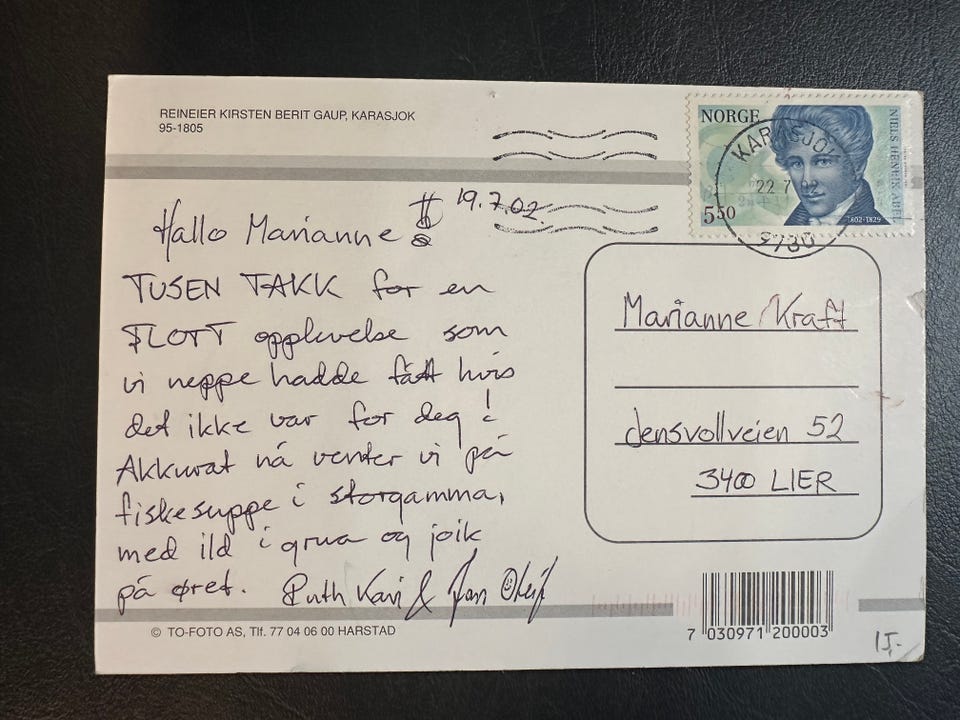 REINEIER KIRSTEN BERIT GAUP, KARASJOK
95-1805
NORGE
NIELS HENRIK ABEL
1802-1829
5 50
KARASJOK
22 7
9730
19.7.02
Hallo Marianne
TUSEN TAKK for en
FLOTT opplevelse som
vi neppe hadde fått hvis
det ikke var for deg!
Akkurat nå venter vi på
fiskesuppe i storgamma,
med ild i grua og joik
på øret. Ruth Kari & Jan Oleif
Marianne Kraft
Jensvollveien 52
3400 LIER
© TO-FOTO AS, Tlf. 77 04 06 00 HARSTAD
7 030971 200003
15,-